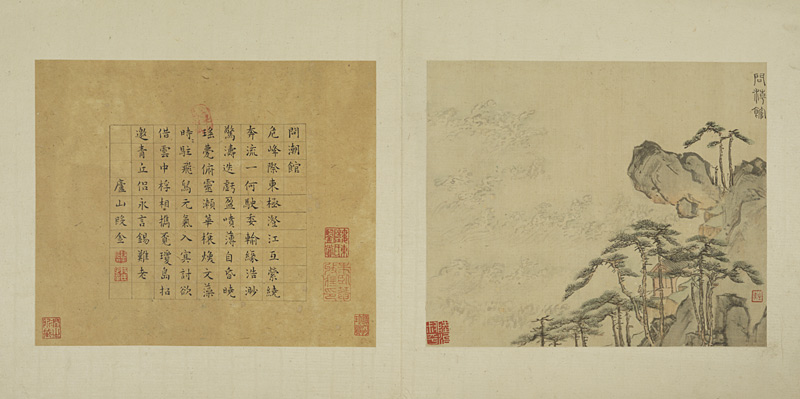 問潮館
問潮館
危峰際東極澄江互縈繞
奔流一何駛委輸緣浩渺
驚濤迭虧盈噴薄自昏曉
瑤甍俯靈瀨華榱煥文藻
時駐飛元氣入冥討欲
借雲中桴相攜覓瓊島招
邀青丘侶永言錫難老
廬山